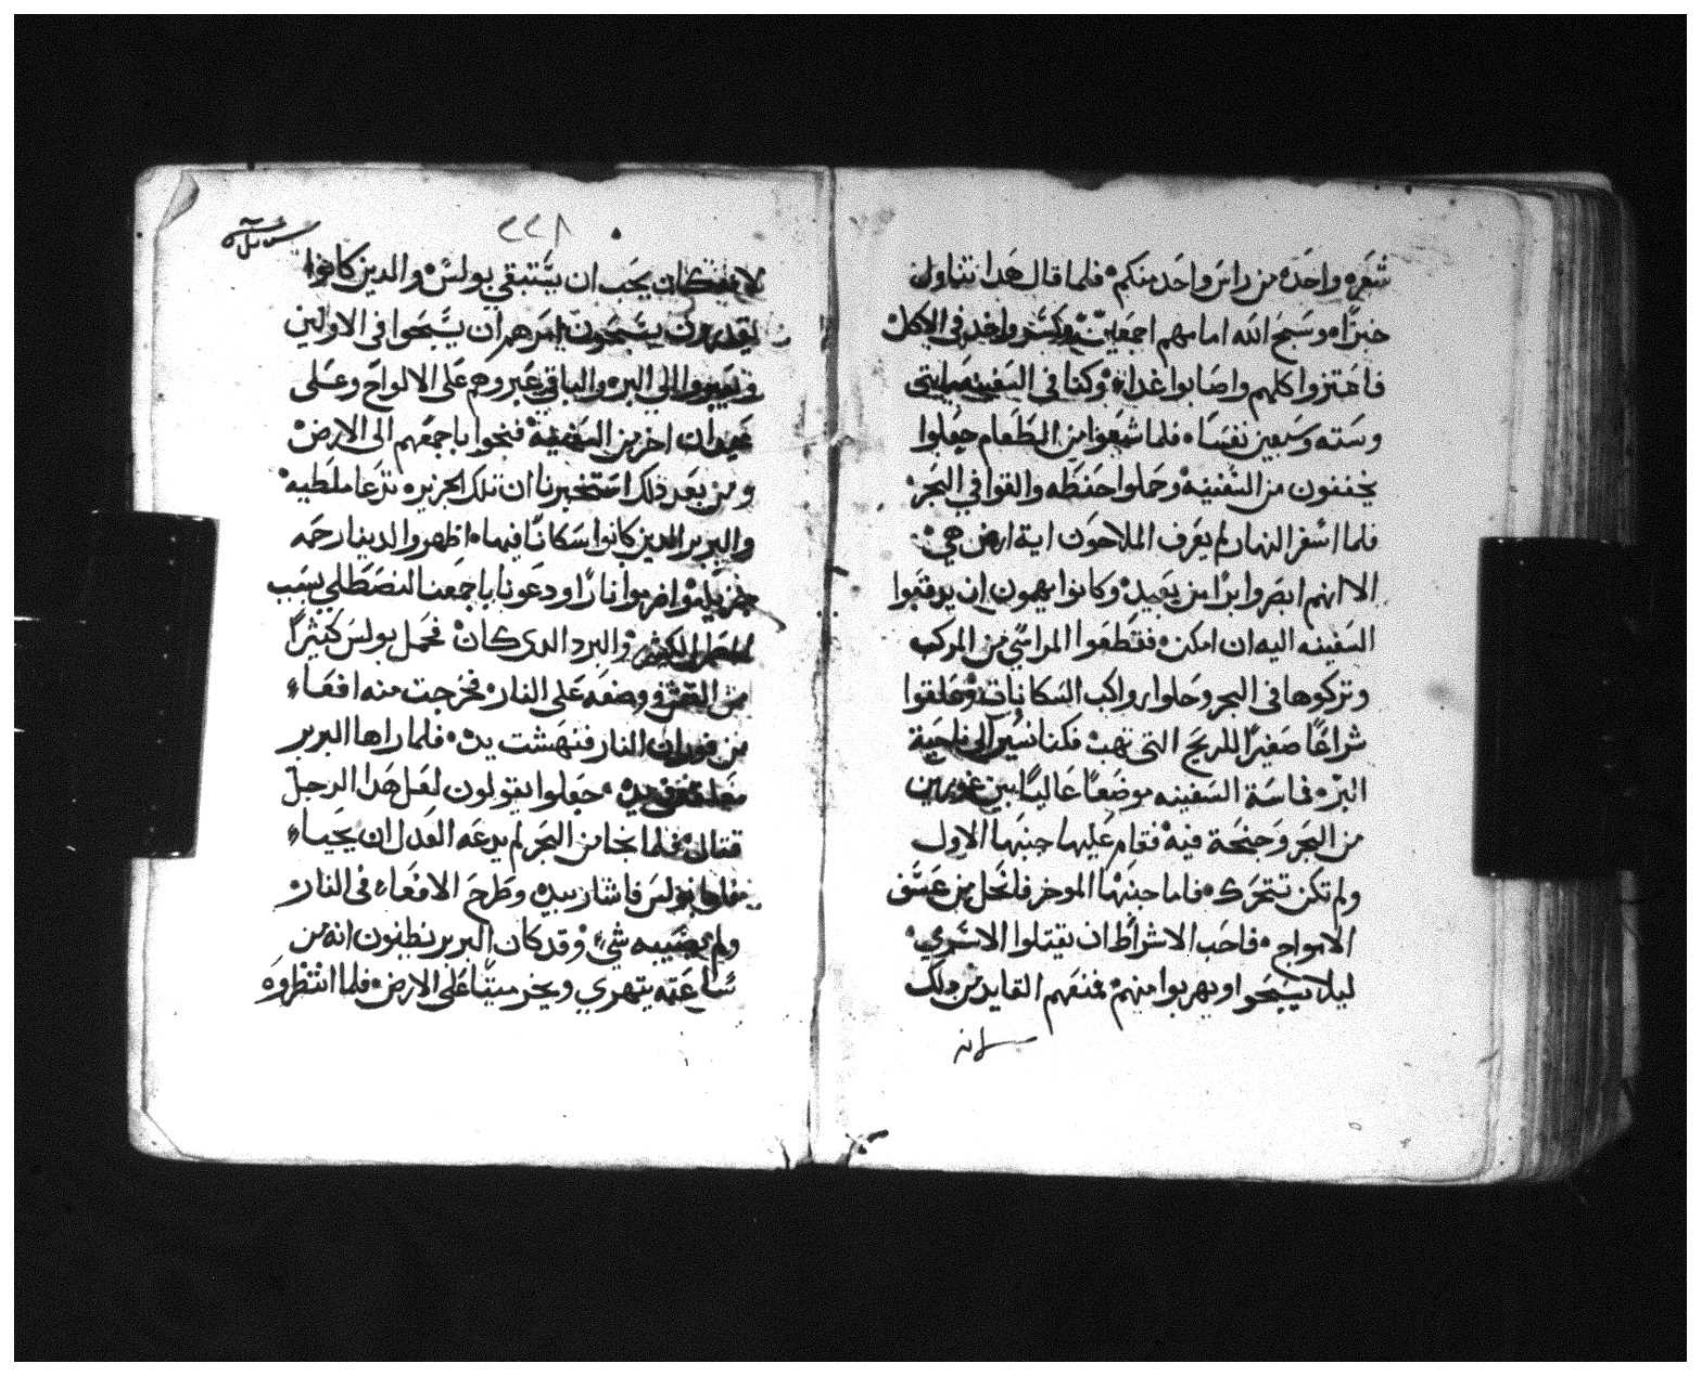 شعره واحده من راس واحد منكم فلما قال هدا تناول
خبزًا وسبح الله امامهم اجمعين وكسر واخد في الاكل
فاعتزوا كلهم واصابوا غداة وكنا في السفينه مايتى
وسته وسبعين نفسًا فلما شبعوا من الطعام جعلوا
يخففون من السفينه وحملوا حنطه والقوا في البحر
فلما اسفر النهار لم يعرف الملاحون اية ارض هي
الا انهم ابصروا برًا من بعيد وكانوا يهمون ان يدفعوا
السفينه اليه ان امكن فقطعوا المراسي من المركب
وتركوها فى البحر وحلوا رواكب السكانات وعلقوا
شراعًا صغيرًا للريح التى تهب فكنا نسير الى ناحية
البر فماسة السفينه موضعًا عاليًا بين غورين
من البحر وجنحة فيه فقام عليها جنبها الاول
ولم تكن تتحرك فاما جنبها الموخر فانحل من عسف
الامواج فاحب الاشراط ان يقتلوا الاسرى
ليلا يسبحوا ويهربوا منهم فمنعهم القايد من دلك
لانه
٢٢٨
لانه كان يحب ان يستبقي بولس والدين كانوا
يقدرون يسبحون امرهم ان يسبحوا فى الاولين
ويعبروا الى البر والباقي عبروهم على الالواح وعلى
عيدان اخر من السفينة فنجوا باجمعهم الى الارض
ومن بعد ذلك استخبرنا ان تلك الجزيره تدعا ملطيه
والبربر الدين كانوا سكانًا فيها اظهروا لدينا رحمه
جزيله واضرموا نارًا ودعونا باجمعنا لنصطلي بسبب
المطر الكثير والبرد الدى كان فحمل بولس كثيرًا
من القش ووضعه على النار فخرجت منه افعاء
من فوران النار فنهشت يده فلما راها البربر
معلقه في يده جعلوا يقولون لعل هدا الرجل
قتال فلما نجا من البحر لم يدعه العدل ان يحياء
بولس فاشار بيده وطرح الافعاء فى النار
ولم يصيبه شيء وقد كان البربر يظنون انه من
ساعته يتهري ويخر ميتًا على الارض فلما انتظروه